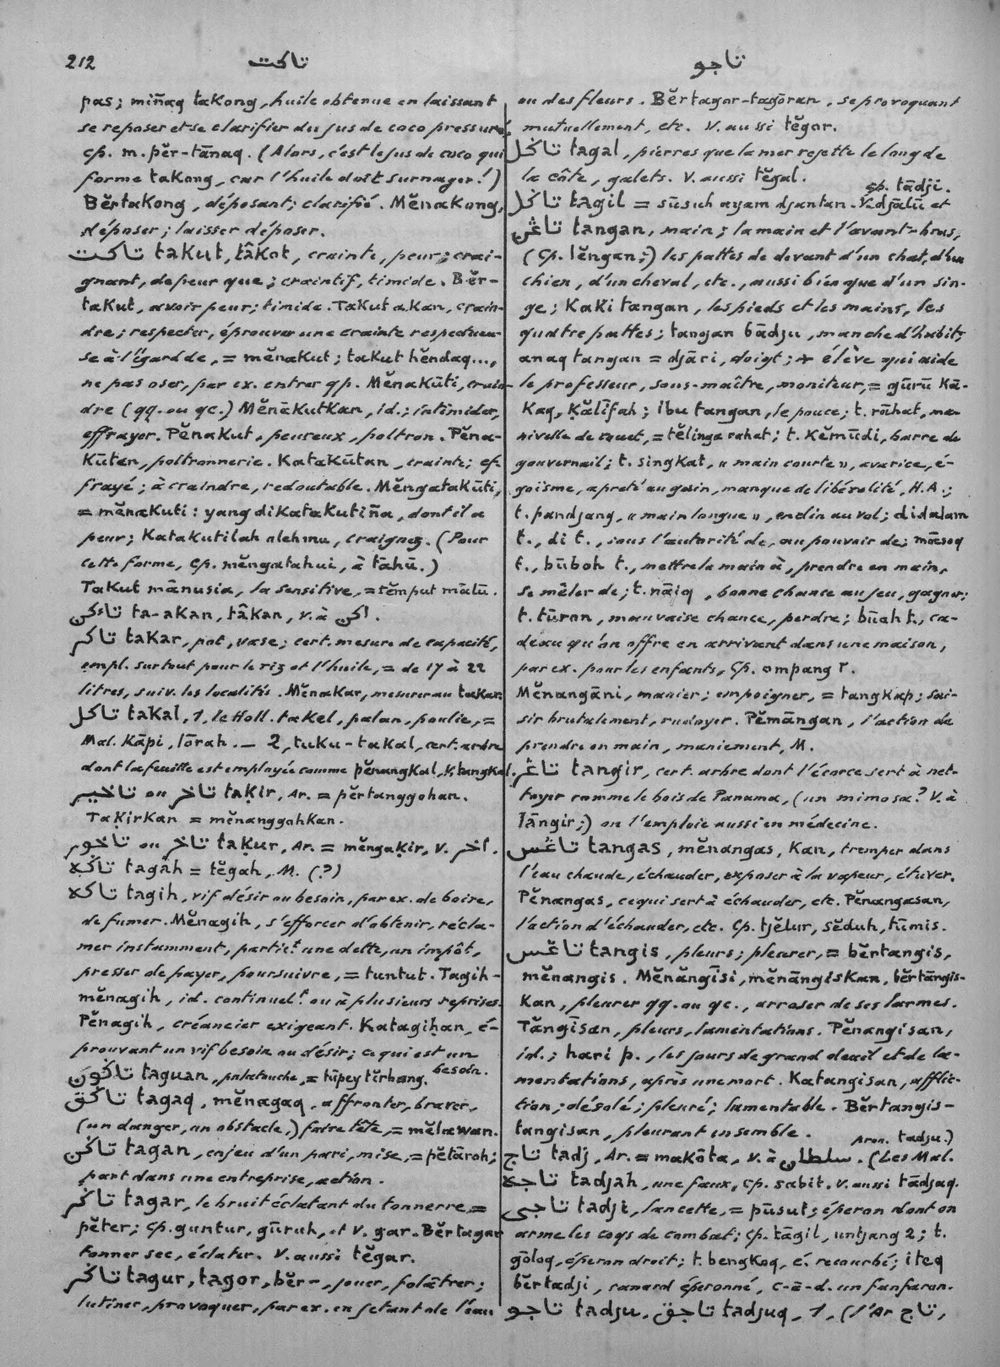 212
تاكت
تاجو
pas; miñaq takong, huile obtenue en laissant
se reposer et se clarifier du jus de coco pressuré,
cp. m. pĕr-tānaq. (Alors, c'est le jus de coco qui
forme takong, car l'huile doit surnager!)
Bĕrtakong, déposant; clarifié. Mĕnakong,
déposer; laisser déposer.
تاكت takut, tâkot, crainte, peur; crai-
gnant, de peur que; craintif, timide. Bĕr-
takut, avoir peur; timide. Takutakan, crain-
dre; respecter, éprouver une crainte respectueu-
se à l'égard de, = mĕnakut; takut hĕndaq...,
ne pas oser, par ex. entrer qp. Mĕnakūti, crain-
dre (qq. ou qc.) Mĕnākutkan, id.; intimider,
effrayer. Pĕnakut, peureux, poltron. Pĕna-
kūtan, poltronnerie. Katakūtan, crainte; ef-
frayé; à craindre, redoutable. Mĕngatakūti,
= mĕnakuti: yang dikatakutiña, dont il a
peur; katakutilah alehmu, craignez. (Pour
cette forme, cp. mĕngatahui, à tāhū.)
Takut mānusia, la sensitive, = tĕmput mālū.
تاءكن ta-akan, tâkan, v. à اكن.
تاكر takar, pot, vase; cert. mesure de capacité,
empl. surtout pour le riz et l'huile, = de 17 à 22
litres, suiv. les localités. Mĕnakar, mesurer au takar.
تاكل takal, 1, le Holl. takel, palan, poulie, =
Mal. kāpi, lōrah. — 2, tuku-takal, cert. arbre
dont la feuille est employée comme pĕnangkal, v. tangkal.
تاخير ou تاخر taḳir, Ar. = pĕrtanggohan.
Taḳirkan = mĕnanggohkan.
تاخور ou تاخر taḳur, Ar. = mĕngaḳir, v. اخر.
تاݢه tagah = tĕgah, M. (?)
تاݢه tagih, vif désir ou besoin, par ex. de boire,
de fumer. Mĕnagih, s'efforcer d'obtenir, récla-
mer instamment, partict. une dette, un impôt,
presser de payer, poursuivre, = tuntut. Tagih-
mĕnagih, id. continuelt. ou à plusieurs reprises.
Pĕnagih, créancier exigeant. Katagihan, é-
prouvant un vif besoin ou désir; ce qui est un
besoin.
تاݢون taguan, palatouche, = tūpey tĕrbang.
تاݢق tagaq, mĕnagaq, affronter, braver,
(un danger, un obstacle,) faire tête, = mĕlawan.
تاݢن tagan, enjeu d'un pari, mise, = pĕtāroh;
part dans une entreprise, action.
تاݢر tagar, le bruit éclatant du tonnerre, =
pĕter; cp. guntur, gūruh, et v. gar. Bĕrtagar
tonner sec, éclater. V. aussi tĕgar.
تاݢر tagur, tagor, bĕr-, jouer, folâtrer;
lutiner, provoquer, par ex. en jetant de l'eau
ou des fleurs. Bĕrtagor-tagōran, se provoquant
mutuellement, etc. V. aussi tĕgor.
تاݢل tagal, pierres que la mer rejette le long de
la côte, galets. V. aussi tĕgal.
cp. tādji.
تاݢل tagil = sūsuh ayam djantan. V. djālū et
تاڠن tangan, main; la main et l'avant-bras,
(Cp. lĕngan;) les pattes de devant d'un chat, d'un
chien, d'un cheval, etc., aussi bien que d'un sin-
ge; kaki tangan, les pieds et les mains, les
quatre pattes; tangan bādju, manche d'habit;
anaq tangan = djāri, doigt; élève qui aide
le professeur, sous-maître, moniteur, = gūrū ka-
kaq, ḳālīfah; ibu tangan, le pouce; t. rāhat, ma-
nivelle de rouet, = tĕlinga rahat; t. kĕmūdi, barre de
gouvernail; t. singkat, « main courte », avarice, é-
goïsme, apreté au gain, manque de libéralité, H.A.;
t. pandjang, « main longue », enclin au vol; didalam
t., di t., sous l'autorité de, au pouvoir de; māsoq
t., būboh t., mettre la main à, prendre en main,
se mêler de; t. nāiq, bonne chance au jeu, gagner;
t. tūron, mauvaise chance, perdre; būah t., ca-
deau qu'on offre en arrivant dans une maison,
par ex. pour les enfants, cp. ompang I.
Mĕnangāni, manier; empoigner, = tangkap; sai-
sir brutalement, rudoyer. Pĕmāngan, l'action de
prendre en main, maniement, M.
تاڠر tangir, cert. arbre dont l'écorce sert à net-
toyer comme le bois de Panama, (un mimosa? V. à
lāngir;) on l'emploie aussi en médecine.
تاڠس tangas, mĕnangas, kan, tremper dans
l'eau chaude, échauder, exposer à la vapeur, étuver.
Pĕnangas, ce qui sert à échauder, etc. Pĕnangasan,
l'action d'échauder, etc. Cp. tjĕlur, sĕduh, tūmis.
تاڠس tangis, pleurs; pleurer, = bĕrtangis,
mĕnangis. Mĕnāngīsi, mĕnāngiskan, bĕrtāngis-
kan, pleurer qq. ou qc., arroser de ses larmes.
Tāngīsan, pleurs, lamentations. Pĕnangisan,
id.; hari p., les jours de grand deuil et de la-
mentations, après une mort. Katangisan, afflic-
tion; désolé; pleuré; lamentable. Bĕrtangis-
tangisan, pleurant ensemble.
pron. tadju.)
تاج tadj, Ar. = makōta, v. à سلطان. (Les Mal.
تاجه tadjah, une faux, cp. sabit. V. aussi tādjaq.
تاجي tadji, lancette, = pūsut; éperon dont on
arme les coqs de combat; cp. tāgil, untjang 2; t.
gōloq, éperon droit; t. bengkoq, é. recourbé; iteq
bĕrtadji, canard éperonné, c-à-d. un fanfaron.
تاجو tadju, تاجق tadjuq, 1, (l'Ar تاج,